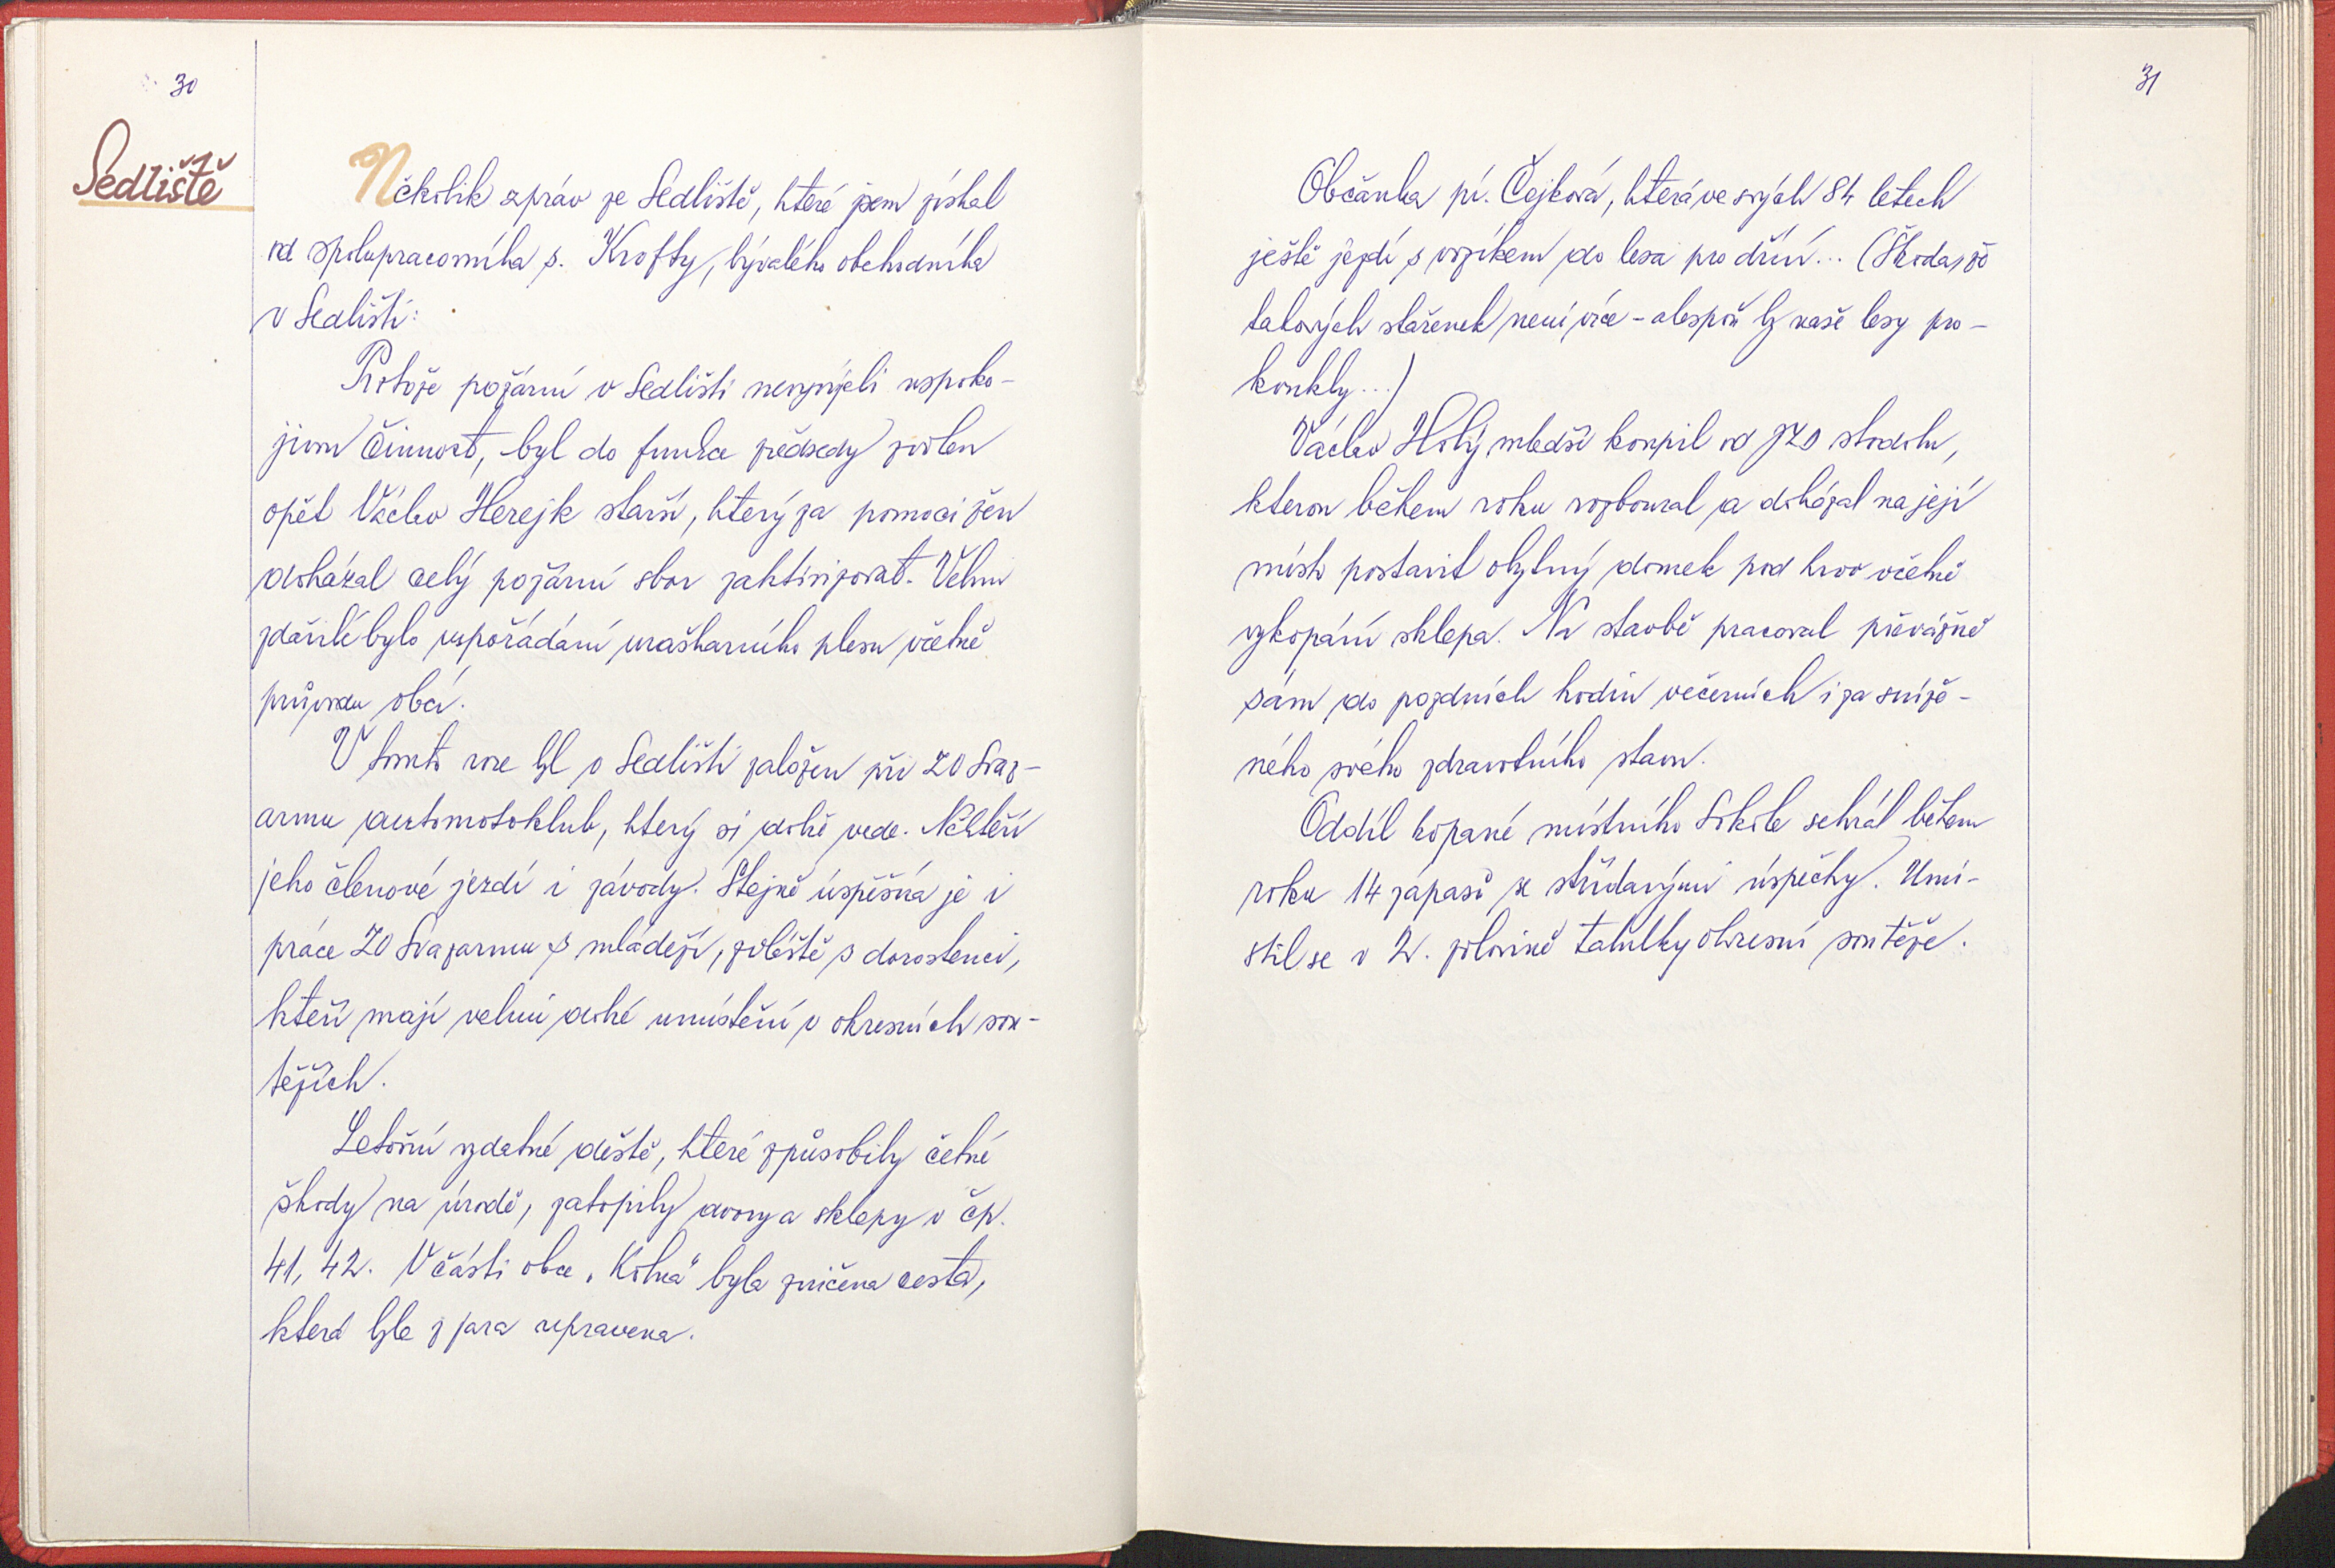 30
Sedliště
Několik zpráv ze Sedliště, které jsem získal
od spolupracovníka s. Krofty, bývalého obchodníka
v Sedlišti:
Protože požární v Sedlišti nevyvíjeli uspoko-
jivou činnost, byl do funkce předsedy zvolen
opět Václav Herejk starší, který za pomoci žen
dokázal celý požární sbor zaktivizovat. Velmi
zdařilé bylo uspořádání maškarního plesu včetně
průvodu obcí.
V tomto roce byl v Sedlišti založen při ZO Svaz-
armu automotoklub, který si dobře vede. Někteří
jeho členové jezdí i závody. Stejně úspěšná je i
práce ZO Svazarmu s mládeží, zvláště s dorostenci,
kteří mají velmi dobré umístění v okresních sou-
těžích.
Letošní vydatné deště, které způsobily četné
škody na úrodě, zatopily dvory a sklepy v čp.
41, 42. V části obce „Kolna" byla zničena cesta,
která byla z jara upravena.
31
Občanka pí. Čejková, která ve svých 84 letech
ještě jezdí s vozíkem do lesa pro dříví... (Škoda, že
takových stařenek není více - alespoň by naše lesy pro-
koukly...)
Václav Holý mladší koupil od JZD stodolu,
kterou během roku rozboural a dokázal na její
místo postavit obytný domek pod krov včetně
vykopání sklepa. Na stavbě pracoval převážně
sám do pozdních hodin večerních i za sníže-
ného svého zdravotního stavu.
Oddíl kopané místního Sokola sehrál během
roku 14 zápasů se střídavými úspěchy. Umí-
stil se v 2. polovině tabulky okresní soutěže.